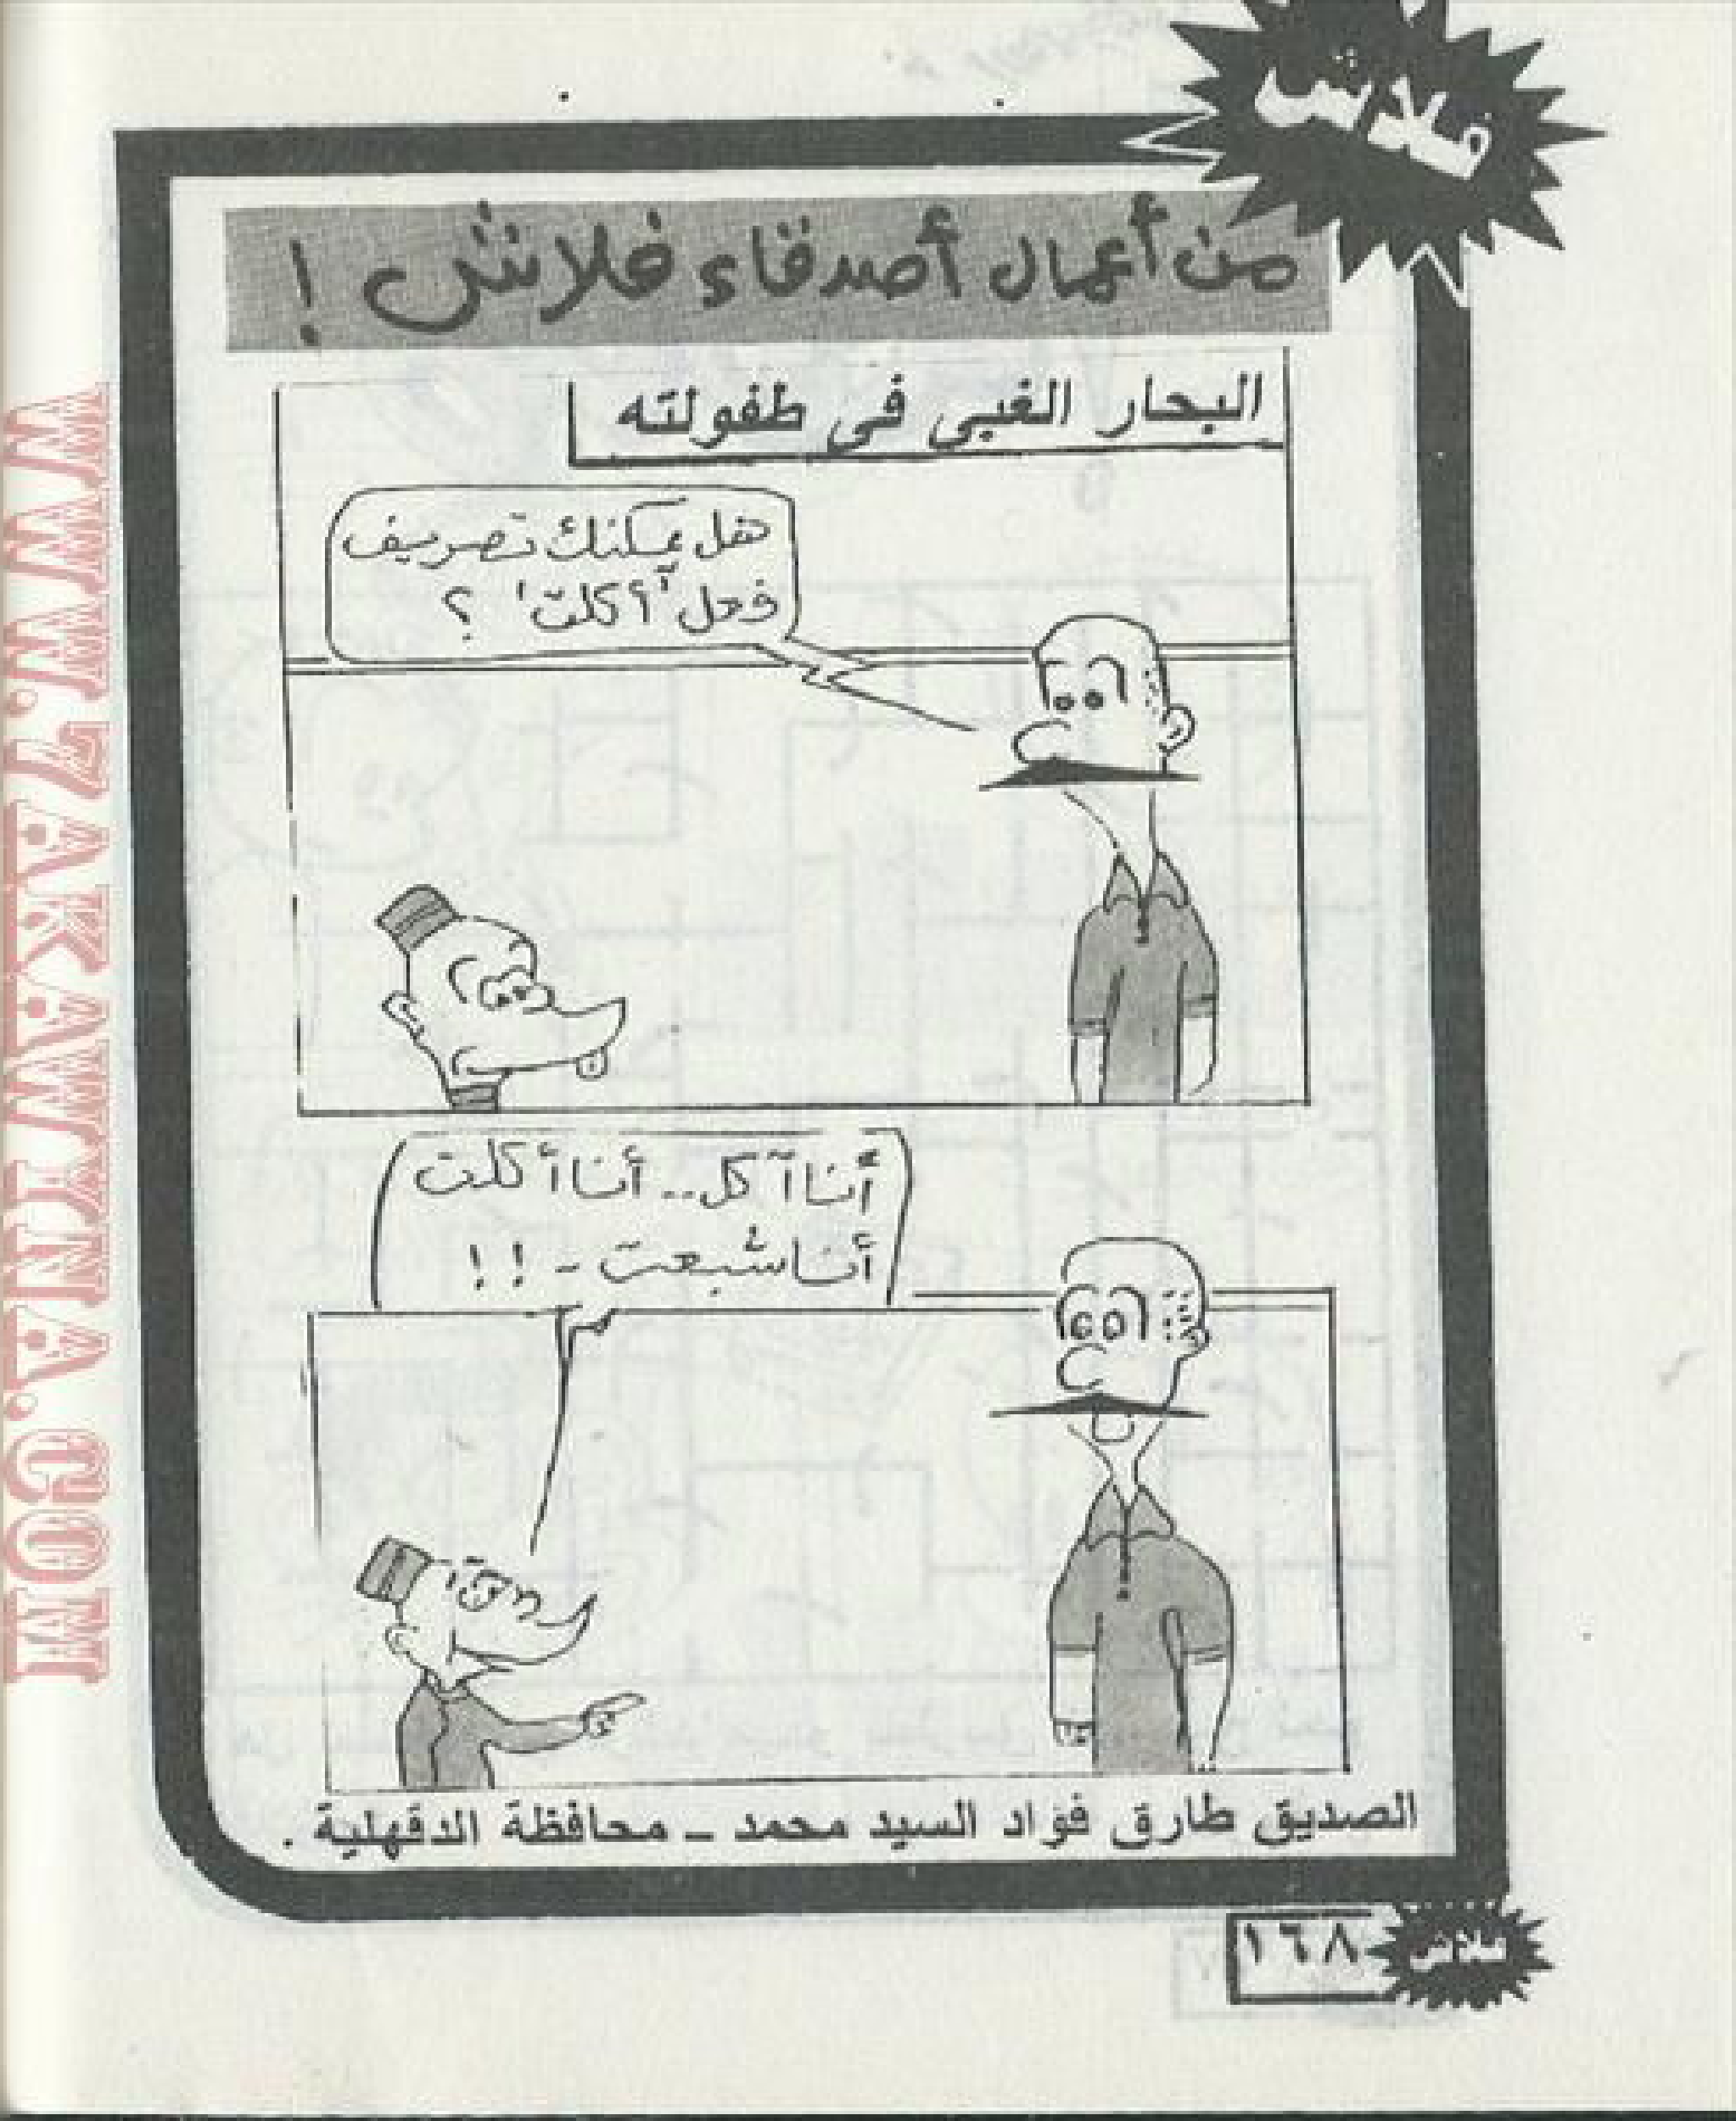 فلاش
من أعمال أصدقاء فلاش !
البحار الغبى فى طفولته
هل يمكنك تصريف
فعل "أكلت" ؟
أنا آكل.. أنا أكلت
أنا شبعت - !!
الصديق طارق فؤاد السيد محمد ــ محافظة الدقهلية .
١٦٨
فلاش
WWW.7AKAWINA.COM